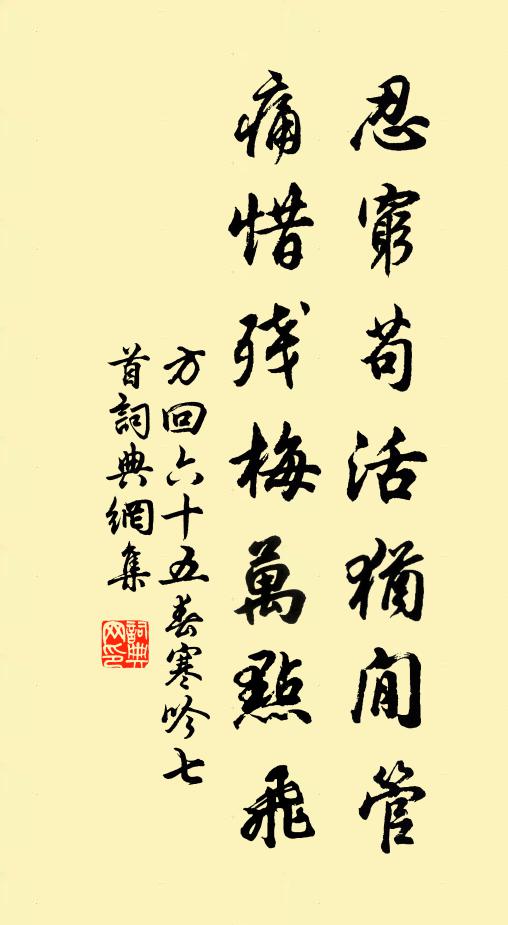 忍窮苟活猶閒管
痛惜残梅萬點飛
方回六十五春寒吟七
首詞典網集
詞典
网印